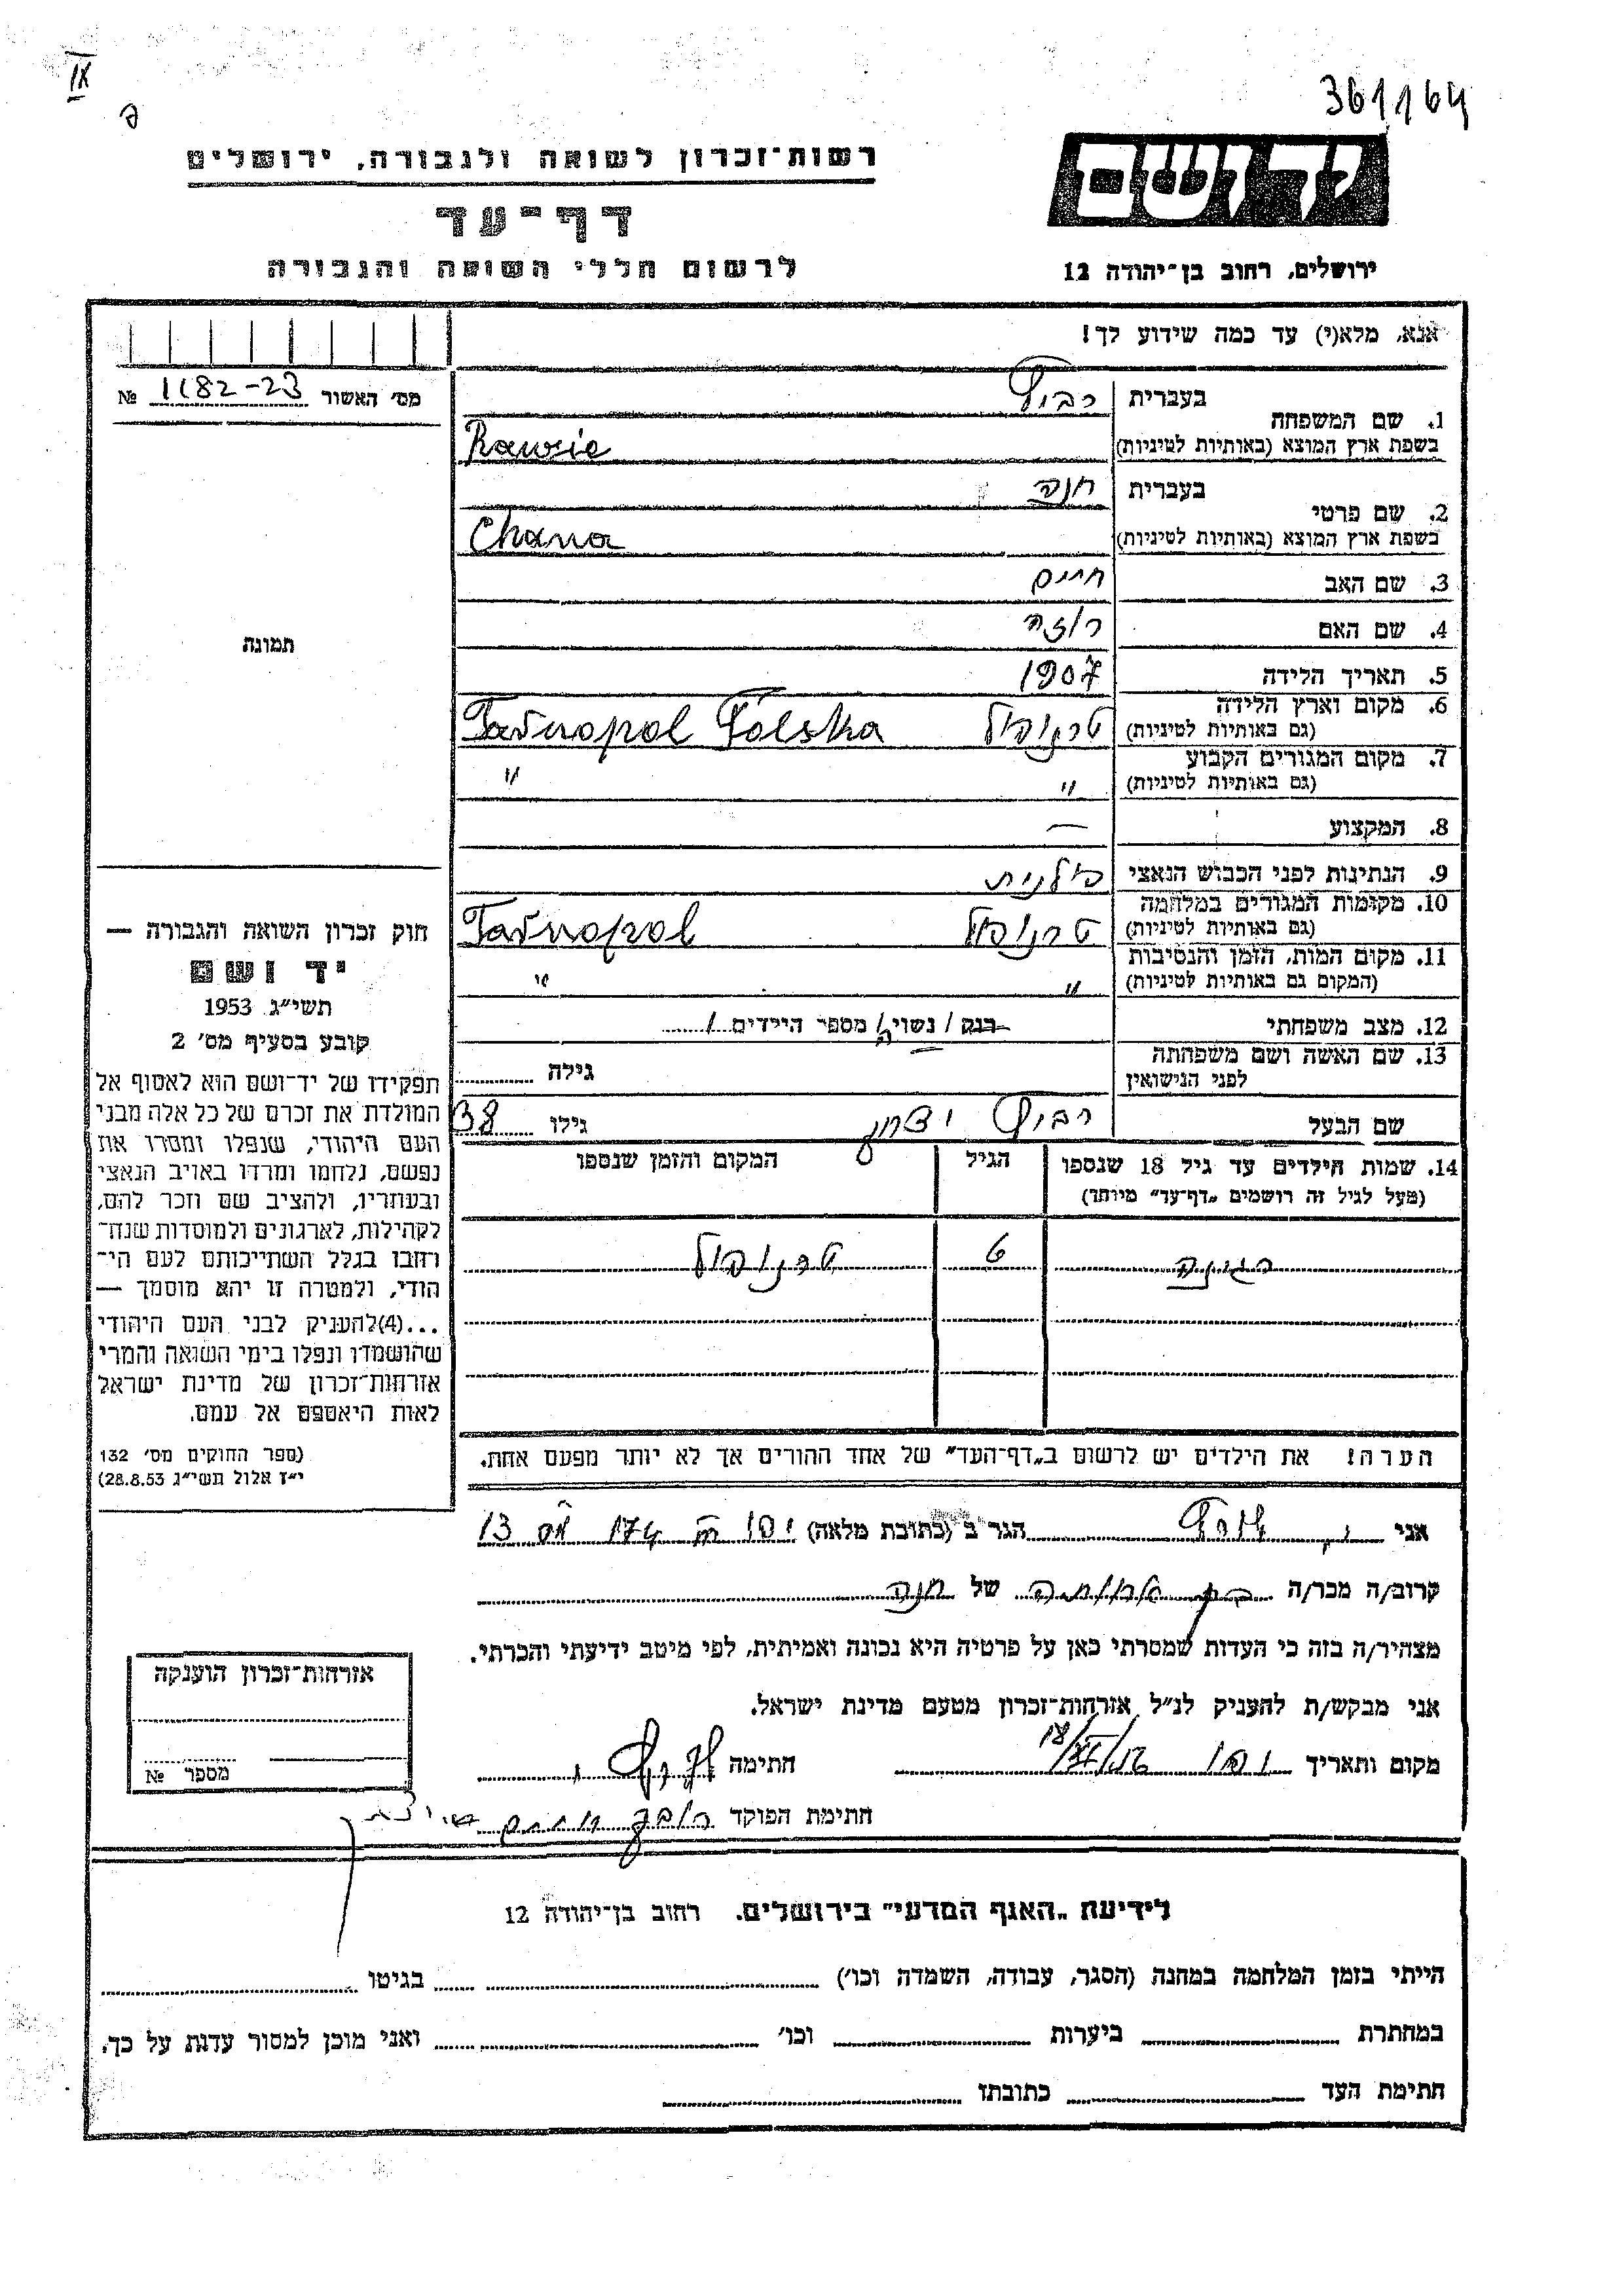 IX
361164
יד ושם
רשות־זכרון לשואה ולגבורה, ירושלים
דף־עד
לרשום חללי השואה והגבורה
ירושלים, רחוב בן־יהודה 12
אנא, מלא(י) עד כמה שידוע לך!
מס׳ האשור № 1182-23
תמונה
1. שם המשפחה בעברית
בשפת ארץ המוצא (באותיות לטיניות) Rawicz
2. שם פרטי בעברית חנה
בשפת ארץ המוצא (באותיות לטיניות) Chana
3. שם האב חיים
4. שם האם רוזה
5. תאריך הלידה 1907
6. מקום וארץ הלידה
(גם באותיות לטיניות) טרנופול Tarnopol Polska
7. מקום המגורים הקבוע
(גם באותיות לטיניות) " "
8. המקצוע —
9. הנתינות לפני הכבוש הנאצי פולנית
10. מקומות המגורים במלחמה
(גם באותיות לטיניות) טרנופול Tarnopol
11. מקום המות, הזמן והנסיבות
(המקום גם באותיות לטיניות) " "
12. מצב משפחתי רווק / נשוי/ה מספר הילדים 1
13. שם האשה ושם משפחתה
לפני הנישואין גילה
שם הבעל יצחק גילו 38
14. שמות הילדים עד גיל 18 שנספו הגיל המקום והזמן שנספו
(מעל לגיל זה רושמים „דף־עד” מיוחד)
6 טרנופול
הערה! את הילדים יש לרשום ב„דף־העד” של אחד ההורים אך לא יותר מפעם אחת.
חוק זכרון השואה והגבורה —
יד ושם
תשי״ג 1953
קובע בסעיף מס׳ 2
תפקידו של יד־ושם הוא לאסוף אל
המולדת את זכרם של כל אלה מבני
העם היהודי, שנפלו ומסרו את
נפשם, נלחמו ומרדו באויב הנאצי
ובעוזריו, ולהציב שם וזכר להם,
לקהילות, לארגונים ולמוסדות שנח־
רבו בגלל השתייכותם לעם הי־
הודי, ולמטרה זו יהא מוסמך —
...(4)להעניק לבני העם היהודי
שהושמדו ונפלו בימי השואה והמרי
אזרחות־זכרון של מדינת ישראל
לאות היאספם אל עמם.
(ספר החוקים מס׳ 132
י״ז אלול תשי״ג 28.8.53)
אני הגר ב (כתובת מלאה) 174 13
קרוב/ה מכר/ה של חנה
מצהיר/ה בזה כי העדות שמסרתי כאן על פרטיה היא נכונה ואמיתית, לפי מיטב ידיעתי והכרתי.
אני מבקש/ת להעניק לנ״ל אזרחות־זכרון מטעם מדינת ישראל.
מקום ותאריך חתימה
חתימת הפוקד
אזרחות־זכרון הוענקה
מספר №
לידיעת „האגף המדעי” בירושלים, רחוב בן־יהודה 12
הייתי בזמן המלחמה במחנה (הסגר, עבודה, השמדה וכו׳) בגיטו
במחתרת ביערות וכו׳ ואני מוכן למסור עדות על כך.
חתימת העד כתובתו